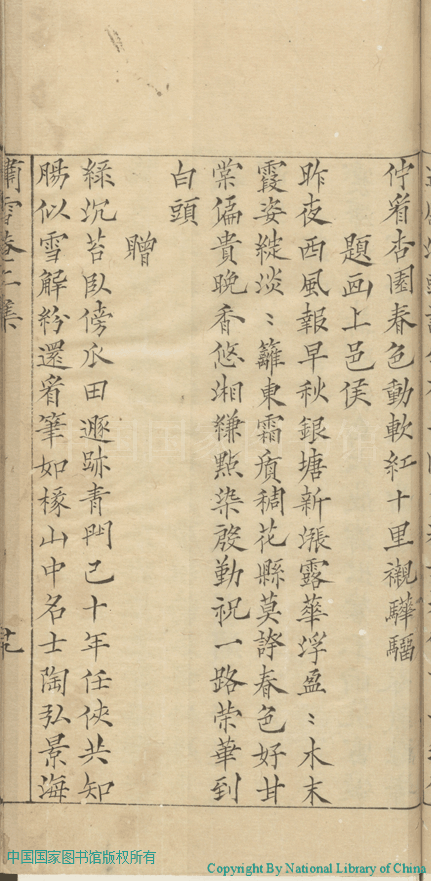 佇看杏園春色動軟紅十里襯驊騮
題画上邑侯
昨夜西風報早秋銀塘新漲露華浮盈〻木末
霞姿綻淡〻籬東霜痕稠花縣莫誇春色好甘
棠偏貴晚香悠湘縑點染殷勤祝一路荣華到
白頭
贈
綠沉苔臥傍瓜田遯跡青門已十年任俠共知
腸似雪解紛還看筆如椽山中名士陶弘景海
中国国家图书馆
中国国家图书馆版权所有
Copyright By National Library of China